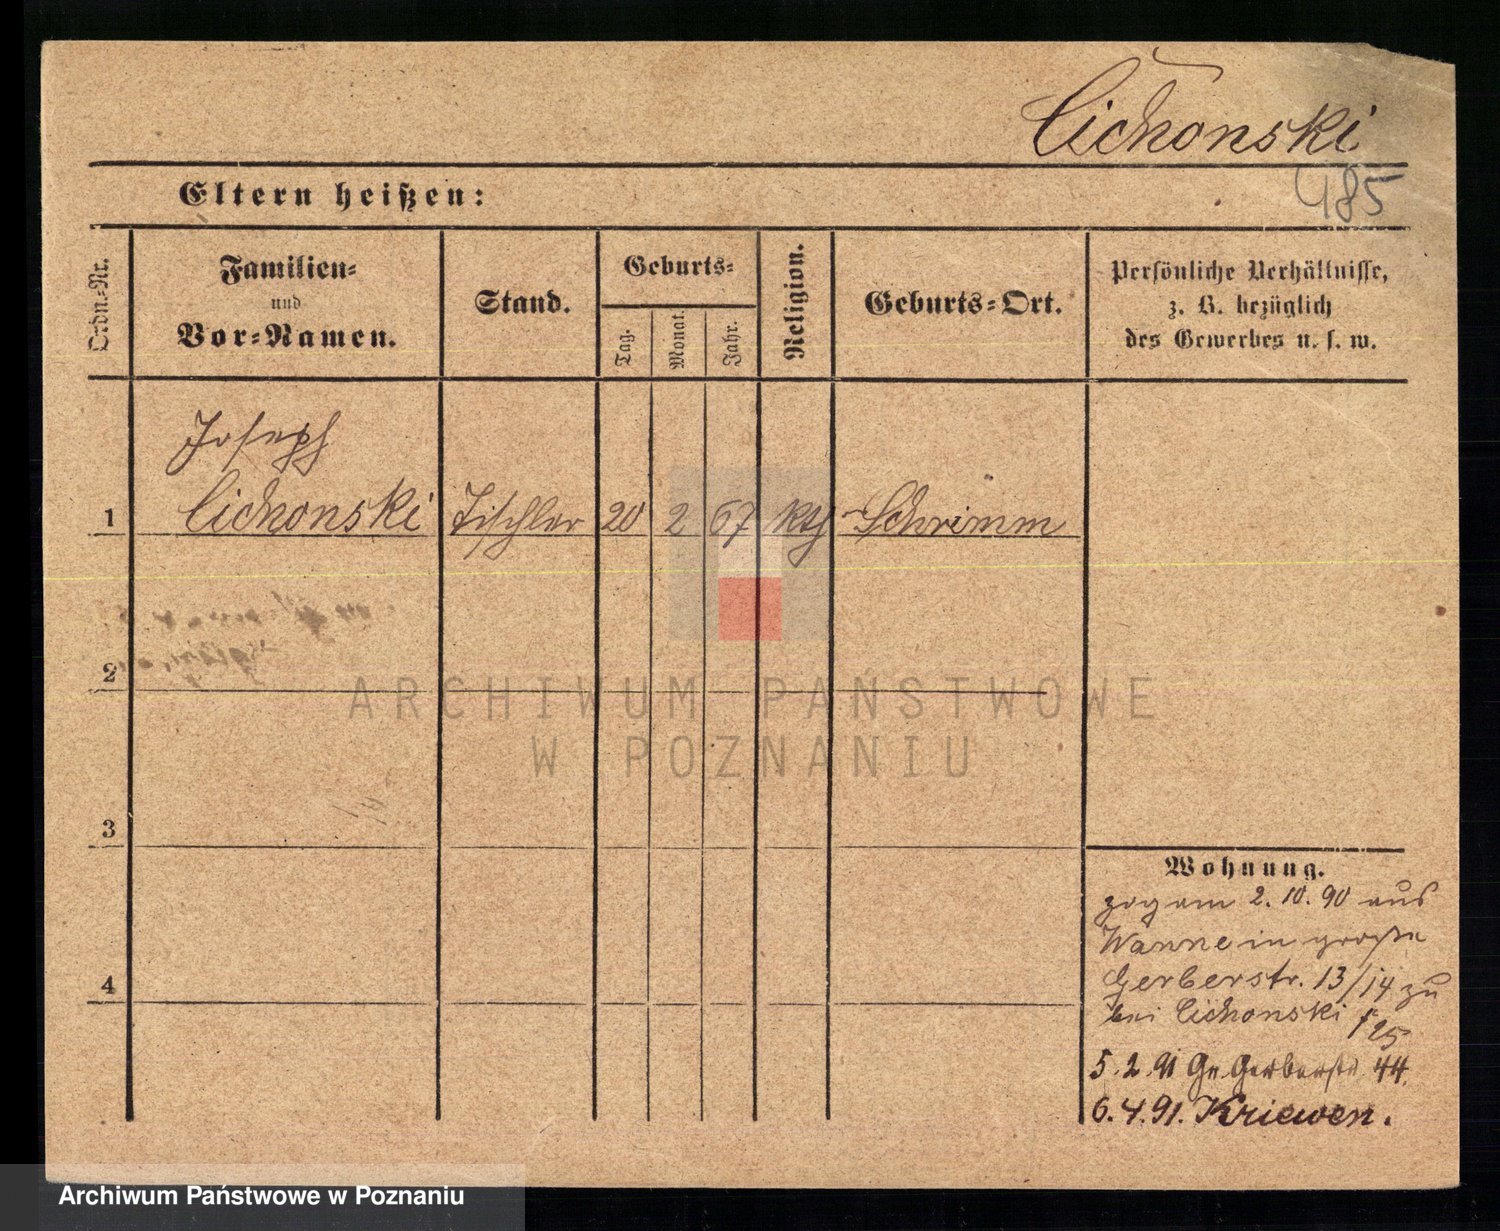 Cichonski
485
Eltern heißen:
Ordn.-Nr.
Familien-
und
Vor-Namen.
Stand.
Geburts-
Tag.
Monat.
Jahr.
Religion.
Geburts-Ort.
Persönliche Verhältnisse,
z. B. bezüglich
des Gewerbes u. s. w.
Joseph
1 Cichonski Tischler 20 2 67 kth Schrimm
2
3
4
ARCHIWUM PAŃSTWOWE
W POZNANIU
Wohnung.
zog am 2.10.90 aus
Wanne in große
Gerberstr. 13/14 zu
bei Cichonski
5.2.91 Gr. Gerberstr. 44.
6.4.91. Kriewen.
Archiwum Państwowe w Poznaniu